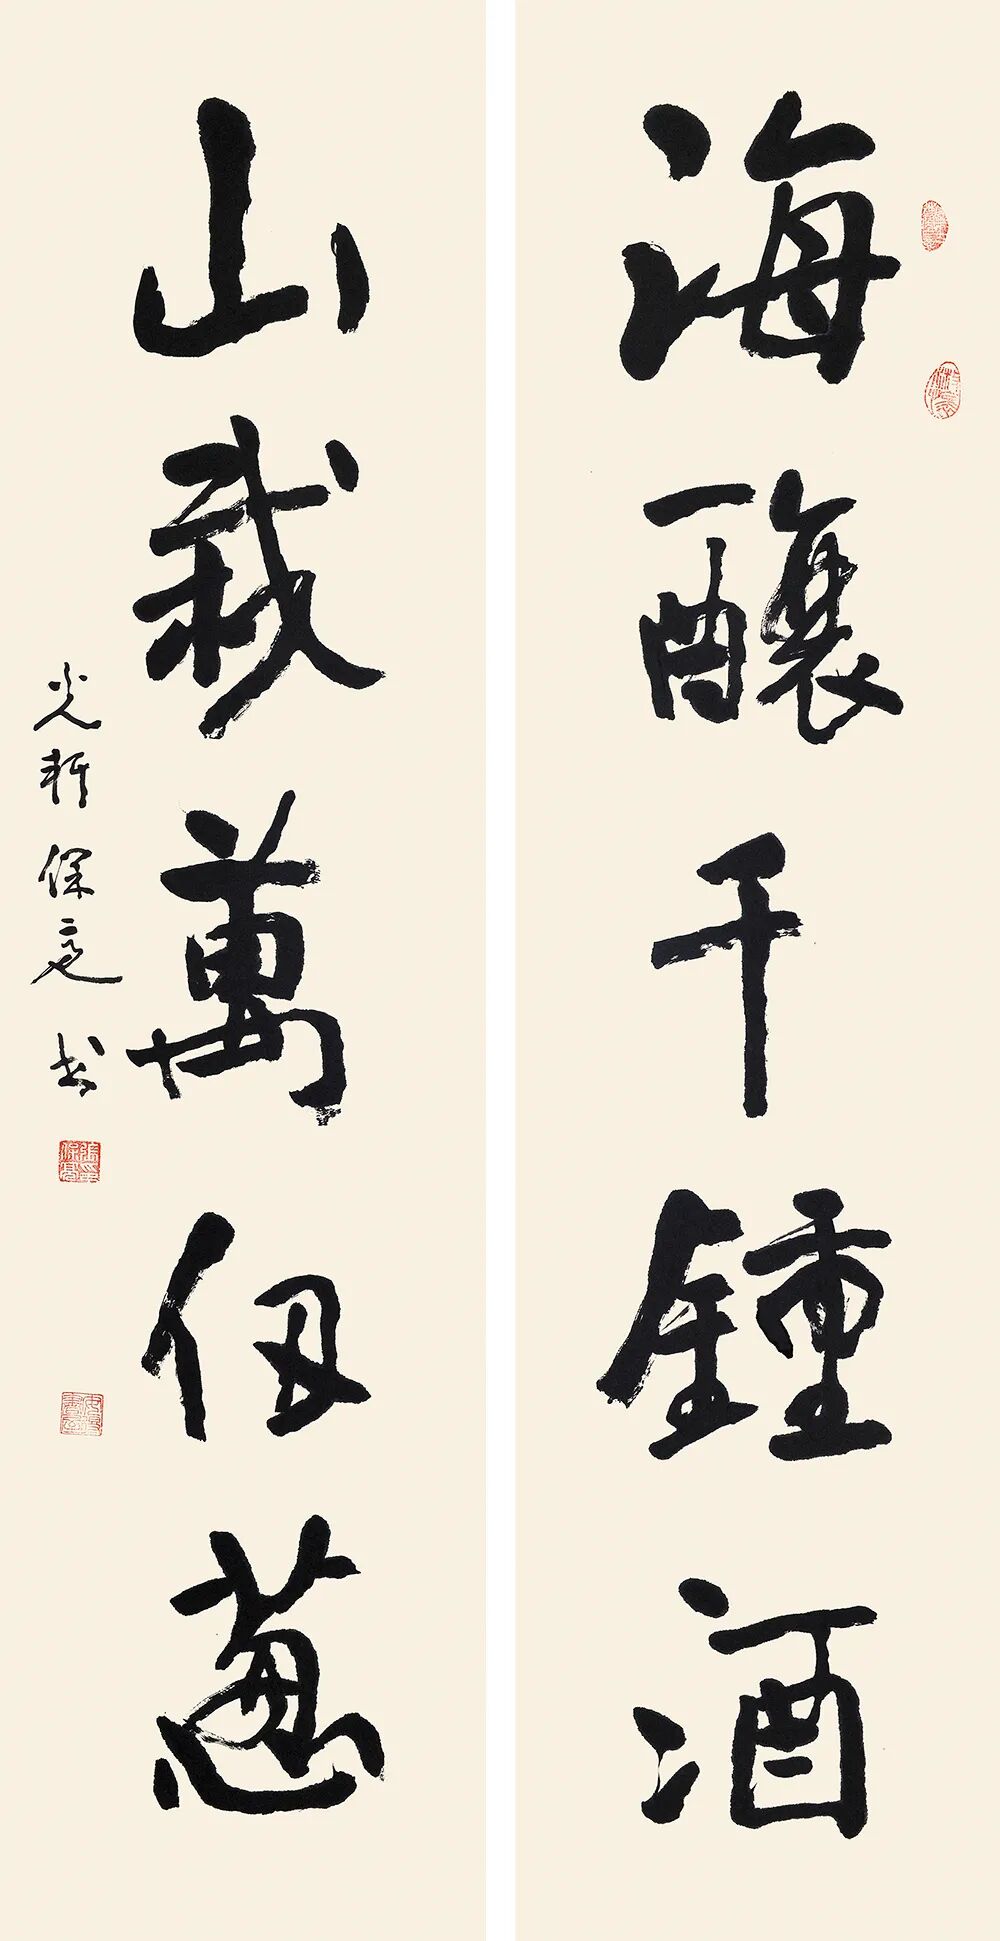 海釀千鍾酒
山栽萬仞葱
光軒保意書